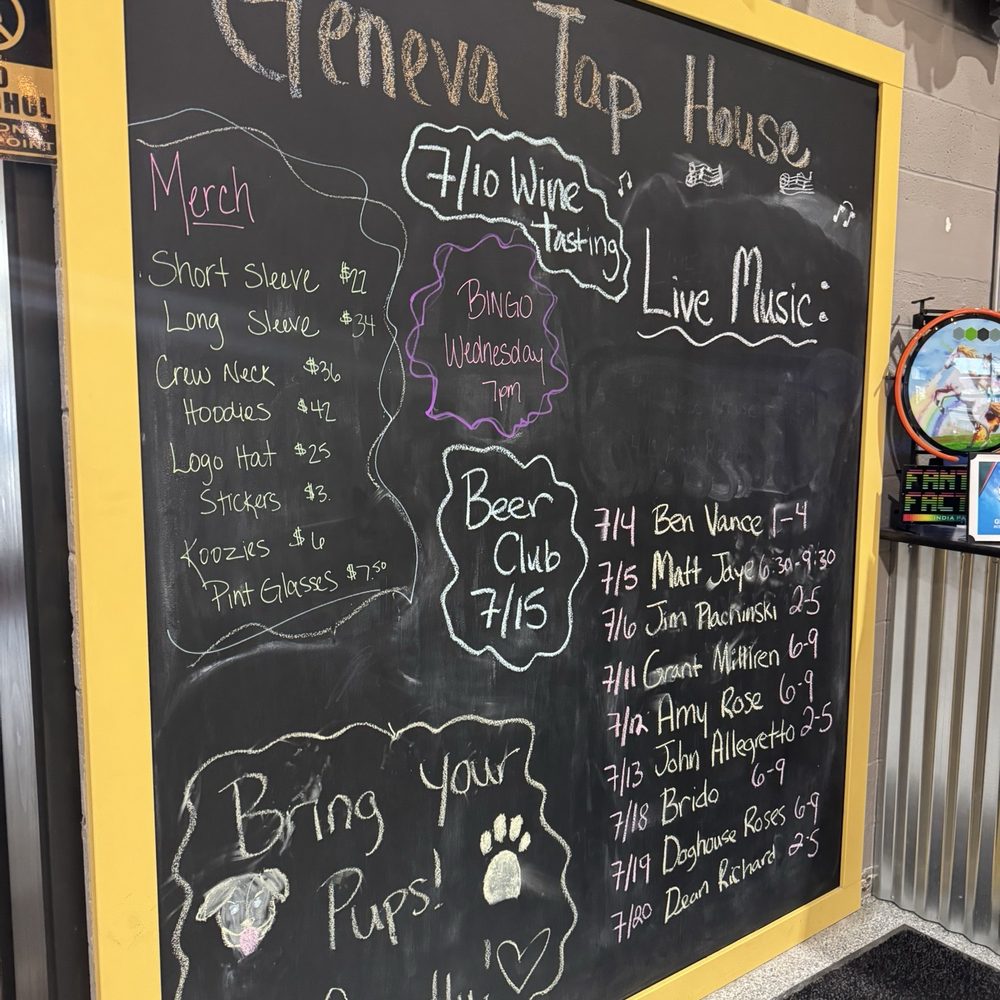 Geneva Tap House
Merch
Short Sleeve $22
Long Sleeve $34
Crew Neck $36
Hoodies $42
Logo Hat $25
Stickers $3.
Koozies $6
Pint Glasses $7.50
7/10 Wine
tasting
BINGO
Wednesday
7pm
Beer
Club
7/15
Live Music:
7/4 Ben Vance 1-4
7/5 Matt Jaye 6:30-9:30
7/6 Jim Plachinski 2-5
7/11 Grant Milliren 6-9
7/12 Amy Rose 6-9
7/13 John Allegretto 2-5
7/18 Brido 6-9
7/19 Doghouse Roses 6-9
7/20 Dean Richard 2-5
Bring your
Pups!
FANT
FACT